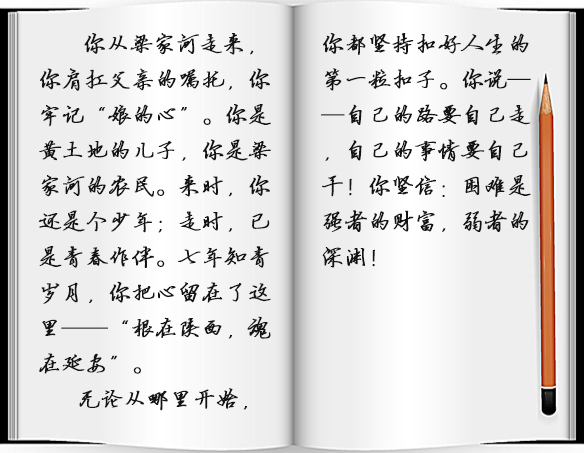 你从梁家河走来，
你肩扛父亲的嘱托，你
牢记“娘的心”。你是
黄土地的儿子，你是梁
家河的农民。来时，你
还是个少年；走时，已
是青春作伴。七年知青
岁月，你把心留在了这
里——“根在陕西，魂
在延安”。
无论从哪里开始，
你都坚持扣好人生的
第一粒扣子。你说—
—自己的路要自己走
，自己的事情要自己
干！你坚信：困难是
强者的财富，弱者的
深渊！